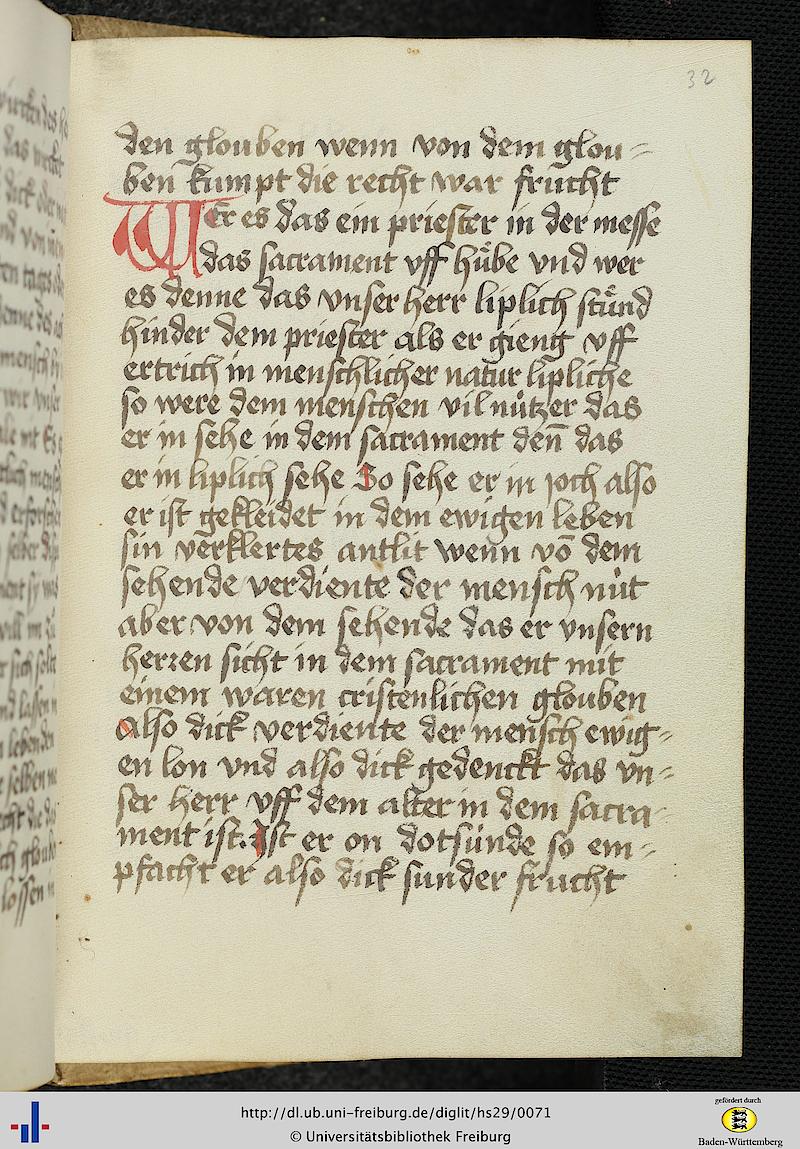 32
den glouben wenn von dem glou-
ben kumpt die recht war frucht
Wer es das ein priester in der messe
das sacrament vff hůbe vnd wer
es denne das vnser herr liplich stůnd
hinder dem priester als er gieng vff
ertrich in menschlicher natur lipliche
so were dem menschen vil nützer das
er in sehe in dem sacrament den̄ das
er in liplich sehe So sehe er in joch also
er ist gekleidet in dem ewigen leben
sin verklertes antlit wenn vō dem
sehende verdiente der mensch nüt
aber von dem sehende das er vnsern
herren sicht in dem sacrament mit
einem waren cristenlichen glouben
also dick verdiente der mensch ewig-
en lon vnd also dick gedenckt das vn-
ser herr vff dem alter in dem sacra-
ment ist. Ist er on dotsünde so em-
pfacht er also dick sunder frucht
http://dl.ub.uni-freiburg.de/diglit/hs29/0071
© Universitätsbibliothek Freiburg
gefördert durch
Baden-Württemberg